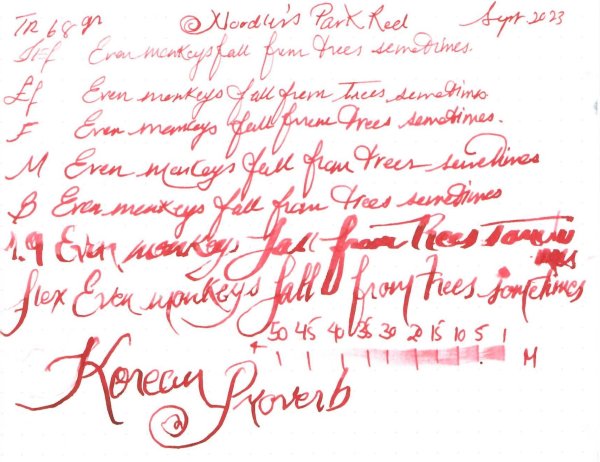 TR 68 gr Noodler's Park Red Sept 2023
EEf Even monkeys fall from trees sometimes.
Ef Even monkeys fall from trees sometimes.
F Even monkeys fall from trees sometimes.
M Even monkeys fall from trees sometimes
B Even monkeys fall from trees sometimes
1.9 Even monkeys fall from trees sometimes
flex Even monkeys fall from trees sometimes
50 45 40 35 30 20 15 10 5 1
M
Korean Proverb